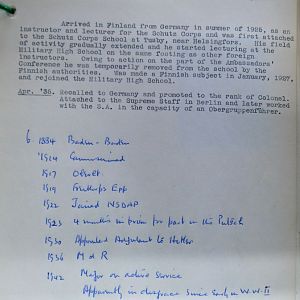 Arrived in Finland from Germany in summer of 1925, as an
instructor and lecturer for the Schutz Corps and was first attached
to the Schutz Corps School at Tusby, near Helsingfors. His field
of activity gradually extended and he started lecturing at the
Military High School on the same footing as other foreign
instructors. Owing to action on the part of the Ambassadors'
Conference he was temporarily removed from the school by the
Finnish authorities. Was made a Finnish subject in January, 1927,
and rejoined the Military High School.
Apr. '35. Recalled to Germany and promoted to the rank of Colonel.
Attached to the Supreme Staff in Berlin and later worked
with the S.A. in the capacity of an Obergruppenführer.
b 1884 Baden-Baden
1904 Commissioned
1917 Oblt
1919 Freikorps Epp
1922 Joined NSDAP
1923 4 months in prison for part in the Putsch
1930 Appointed Adjutant to Hitler
1936 M d R
1942 Major on active service
Apparently in disgrace since early in W.W. II